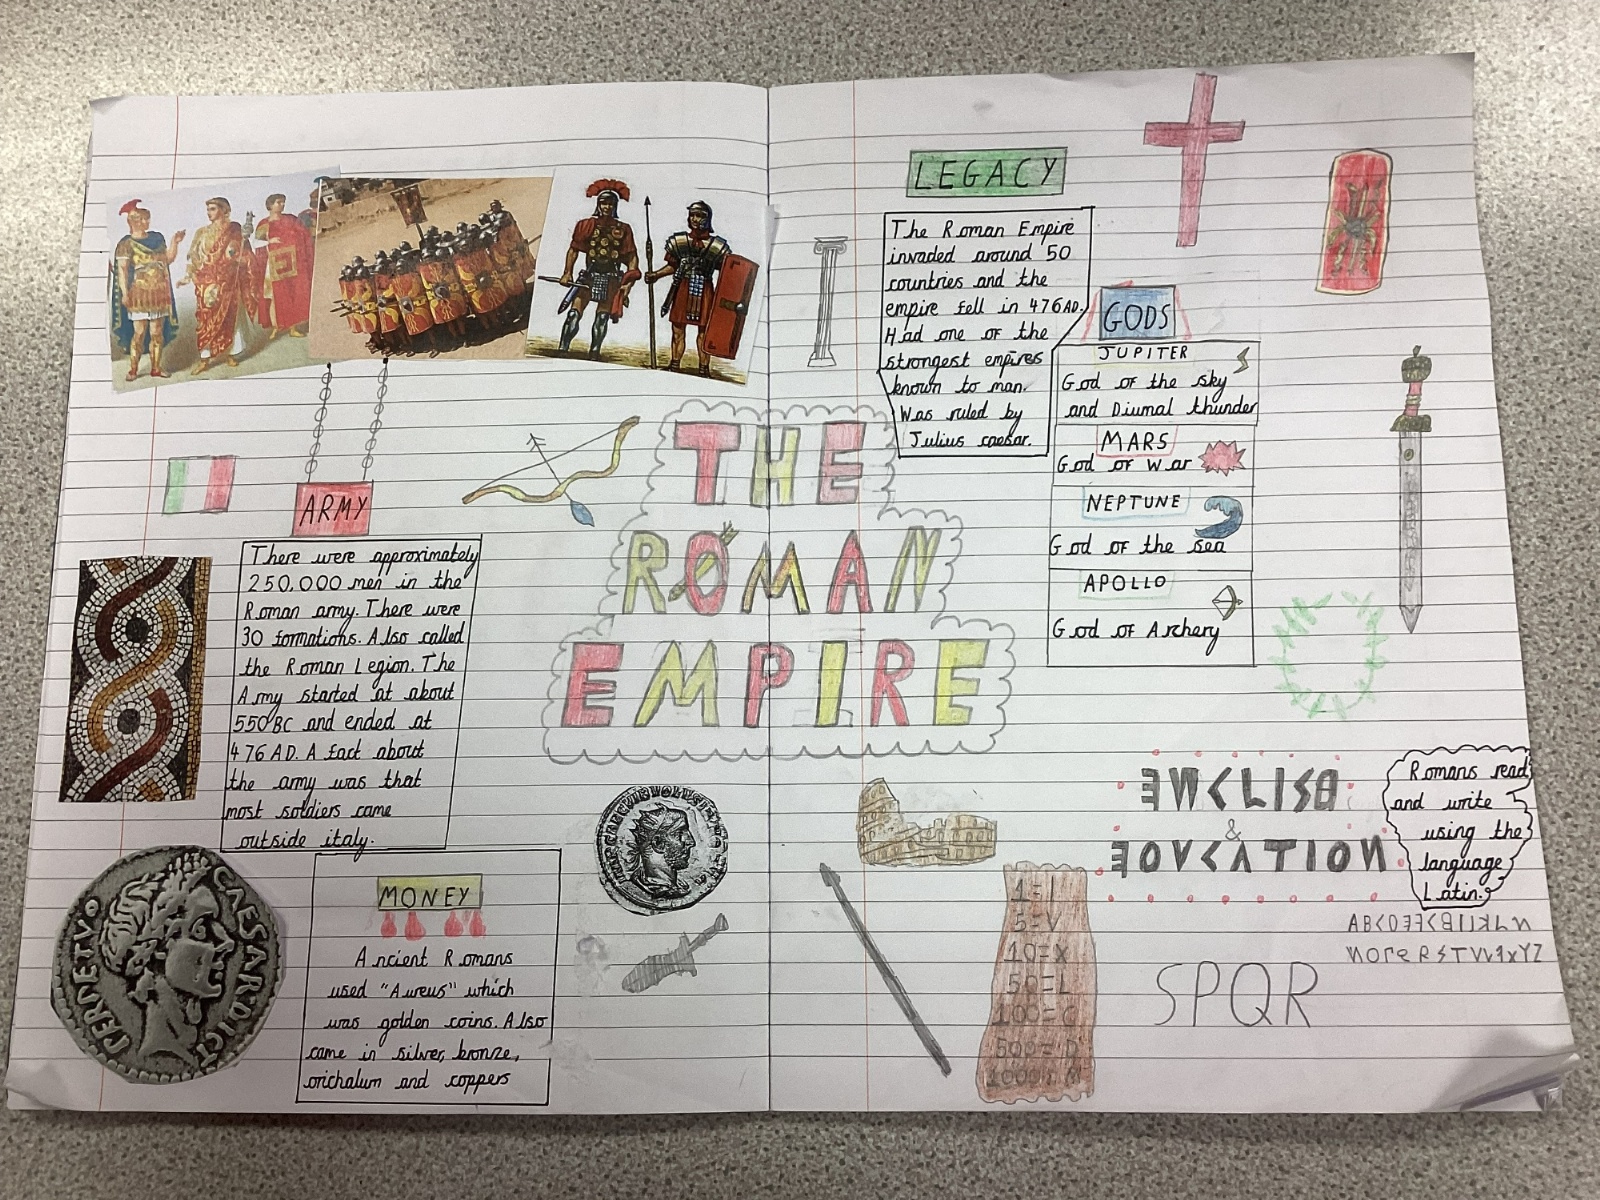 LEGACY
The Roman Empire
invaded around 50
countries and the
empire fell in 476AD.
Had one of the
strongest empires
known to man.
Was ruled by
Julius caesar.
GODS
JUPITER
God of the sky
and Diumal thunder
MARS
God of war
NEPTUNE
God of the sea
APOLLO
God of Archery
THE
ROMAN
EMPIRE
ARMY
There were approximately
250,000 men in the
Roman army. There were
30 formations. Also called
the Roman Legion. The
Army started at about
550BC and ended at
476AD. A fact about
the army was that
most soldiers came
outside italy.
MONEY
Ancient Romans
used "Aureus" which
was golden coins. Also
came in silver, bronze,
orichalum and coppers
CAESAR DICT
PERPETVO
1=I
5=V
10=X
50=L
100=C
500=D
1000=M
ENGLISH
&
EDUCATION
Romans read
and write
using the
language
Latin.
SPQR